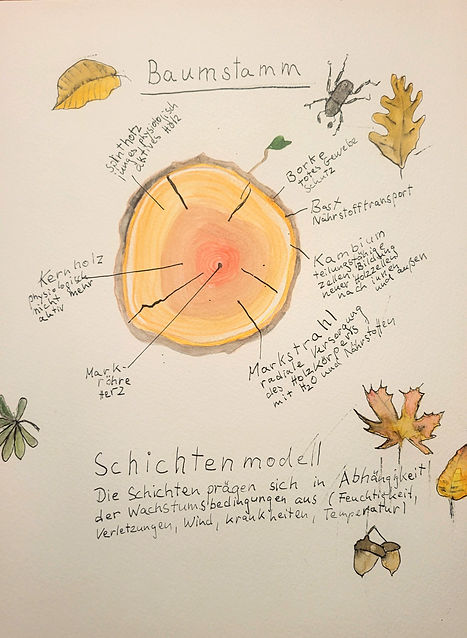 Baumstamm
Splintholz
junges, physiologisch
aktives Holz
Borke
totes Gewebe
Schutz
Bast
Nährstofftransport
Kambium
teilungsfähige
Zellen Bildung
neuer Holzzellen
nach innen
und außen
Kernholz
physiologisch
nicht mehr
aktiv
Mark-
röhre
Herz
Markstrahl
radiale Versorgung
des Holzkörpers
mit H2O und Nährstoffen
Schichtenmodell
Die Schichten prägen sich in Abhängigkeit
der Wachstumsbedingungen aus (Feuchtigkeit,
Verletzungen, Wind, Krankheiten, Temperatur)